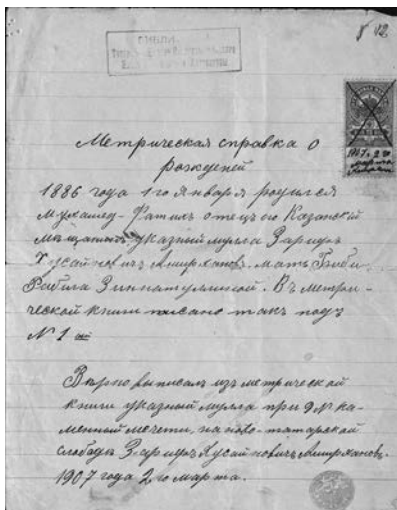 8 12
Метрическая справка о
рожденіи
1886 года 1го Января родился
Мухамед-Фатихъ отецъ его Казанскій
мѣщанинъ указный мулла Зарифъ
Хусаиновичъ Амирхановъ. мать Биби-
Рабига Зиннатуллиной. Въ метри-
ческой книги писано такъ подъ
№ 1 ый
1907 г. 2 го
марта
Вѣрно выписалъ изъ метрической
книги указный мулла при 9 № ка-
менной мечети, на ново-татарской
слободы Зарифъ Хусаиновичъ Амирхановъ.
1907 года 2 го марта.